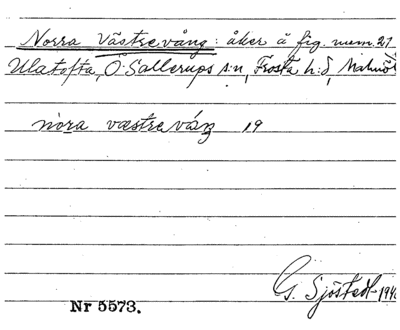 Norra Västrevång: åker å fig. num. 21
Ulatofta, Ö. Sallerups s:n, Frosta h:d, Malmöh
nora væstreváŋ 19
G. Sjöstedt 194
Nr 5573.